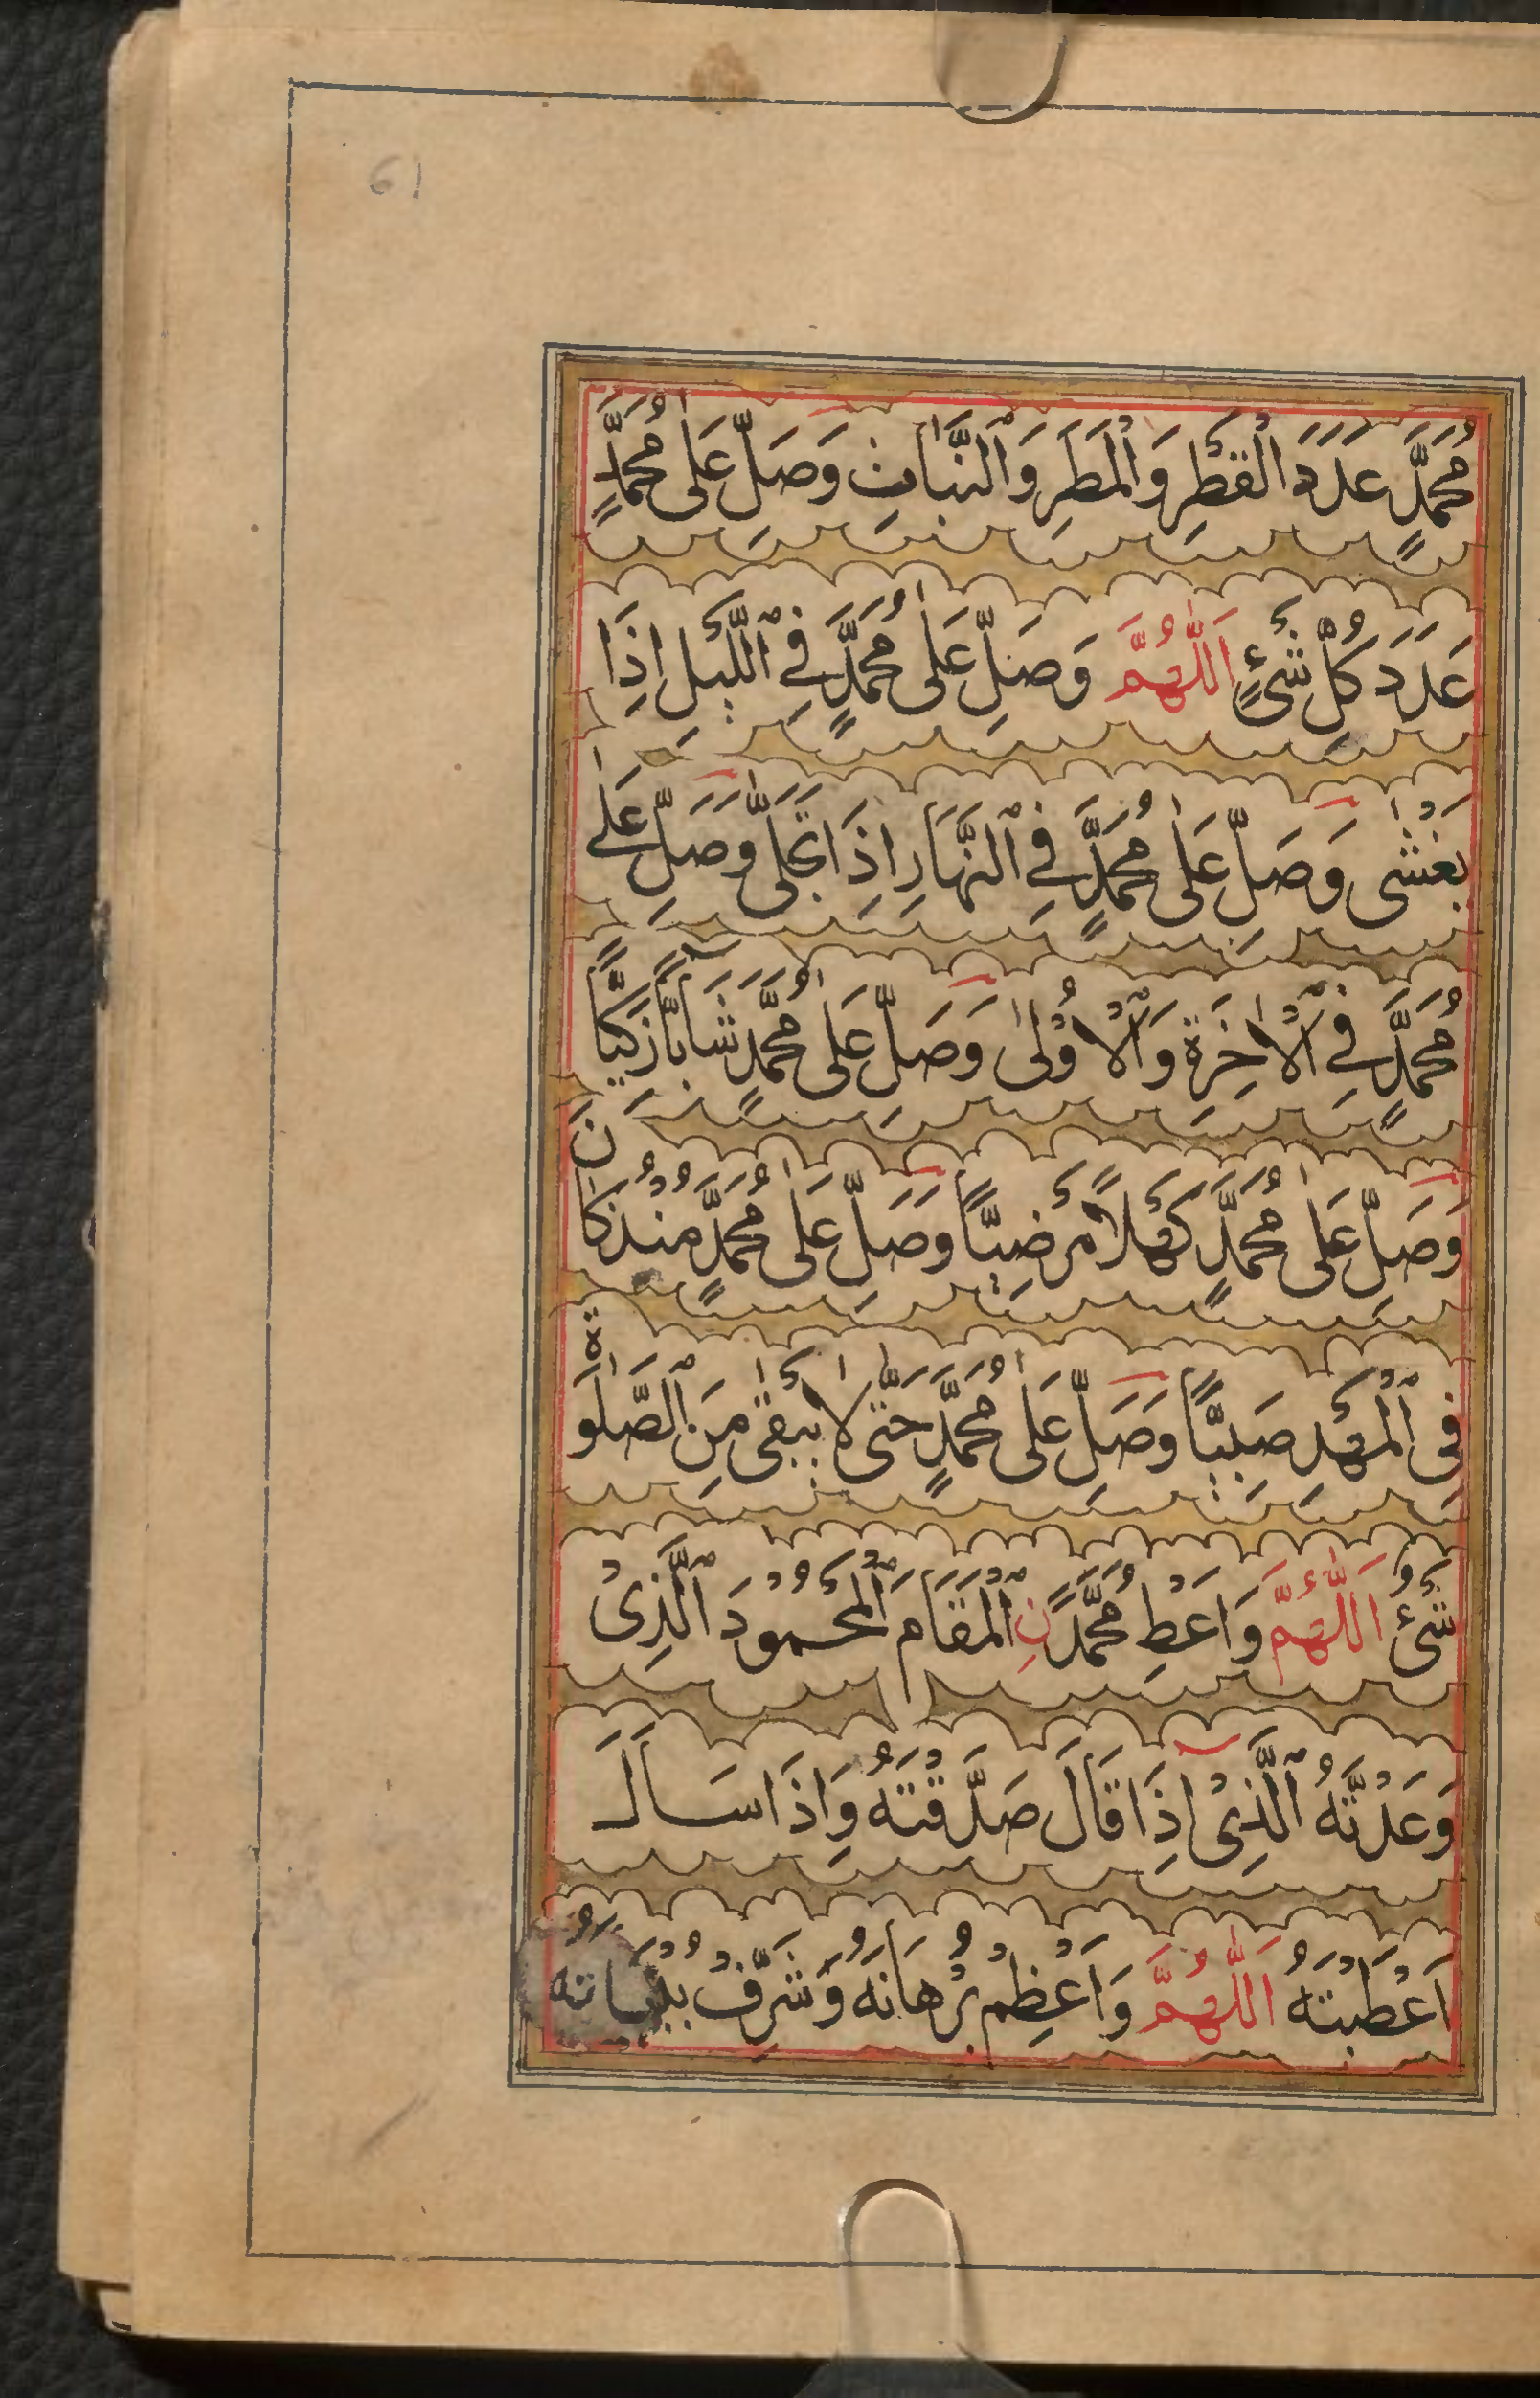 61
مُحَمَّدٍ عَدَدَ الْقَطْرِ وَالْمَطَرِ وَالنَّبَاتِ وَصَلِّ عَلٰى مُحَمَّدٍ
عَدَدَ كُلِّ شَيْءٍ اَللّٰهُمَّ وَصَلِّ عَلٰى مُحَمَّدٍ فِي اللَّيْلِ اِذَا
يَغْشٰى وَصَلِّ عَلٰى مُحَمَّدٍ فِي النَّهَارِ اِذَا تَجَلّٰى وَصَلِّ عَلٰى
مُحَمَّدٍ فِي الْاٰخِرَةِ وَالْاُوْلٰى وَصَلِّ عَلٰى مُحَمَّدٍ شَابًّا زَكِيًّا
وَصَلِّ عَلٰى مُحَمَّدٍ كَهْلًا مَرْضِيًّا وَصَلِّ عَلٰى مُحَمَّدٍ مُنْذُ كَانَ
فِى الْمَهْدِ صَبِيًّا وَصَلِّ عَلٰى مُحَمَّدٍ حَتّٰى لَا يَبْقٰى مِنَ الصَّلٰوةِ
شَيْءٌ اَللّٰهُمَّ وَاَعْطِ مُحَمَّدًا نِ الْمَقَامَ الْمَحْمُوْدَ الَّذِىْ
وَعَدْتَّهُ الَّذِىْ اِذَا قَالَ صَدَّقْتَهُ وَاِذَا سَاَلَ
اَعْطَيْتَهُ اَللّٰهُمَّ وَاَعْظِمْ بُرْهَانَهُ وَشَرِّفْ بُنْيَانَهُ